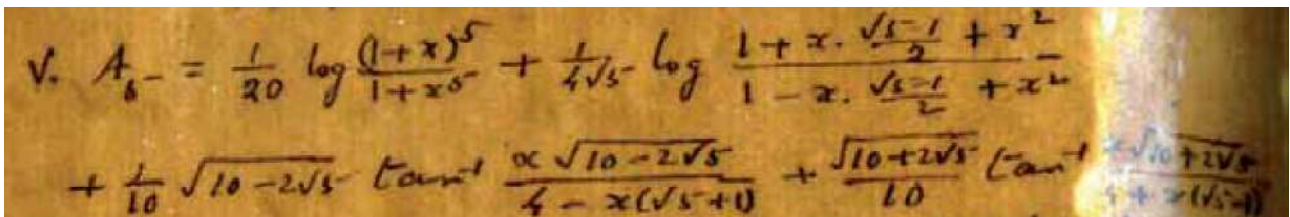 V. A_5 = \frac{1}{20} log \frac{(1+x)^5}{1+x^5} + \frac{1}{4√5} log \frac{1 + x. \frac{√5-1}{2} + x^2}{1 - x. \frac{√5-1}{2} + x^2}
+ \frac{1}{10} √{10-2√5} tan^{-1} \frac{x √{10-2√5}}{4 - x(√5+1)} + \frac{√{10+2√5}}{10} tan^{-1} \frac{x√{10+2√5}}{4 + x(√5-1)}